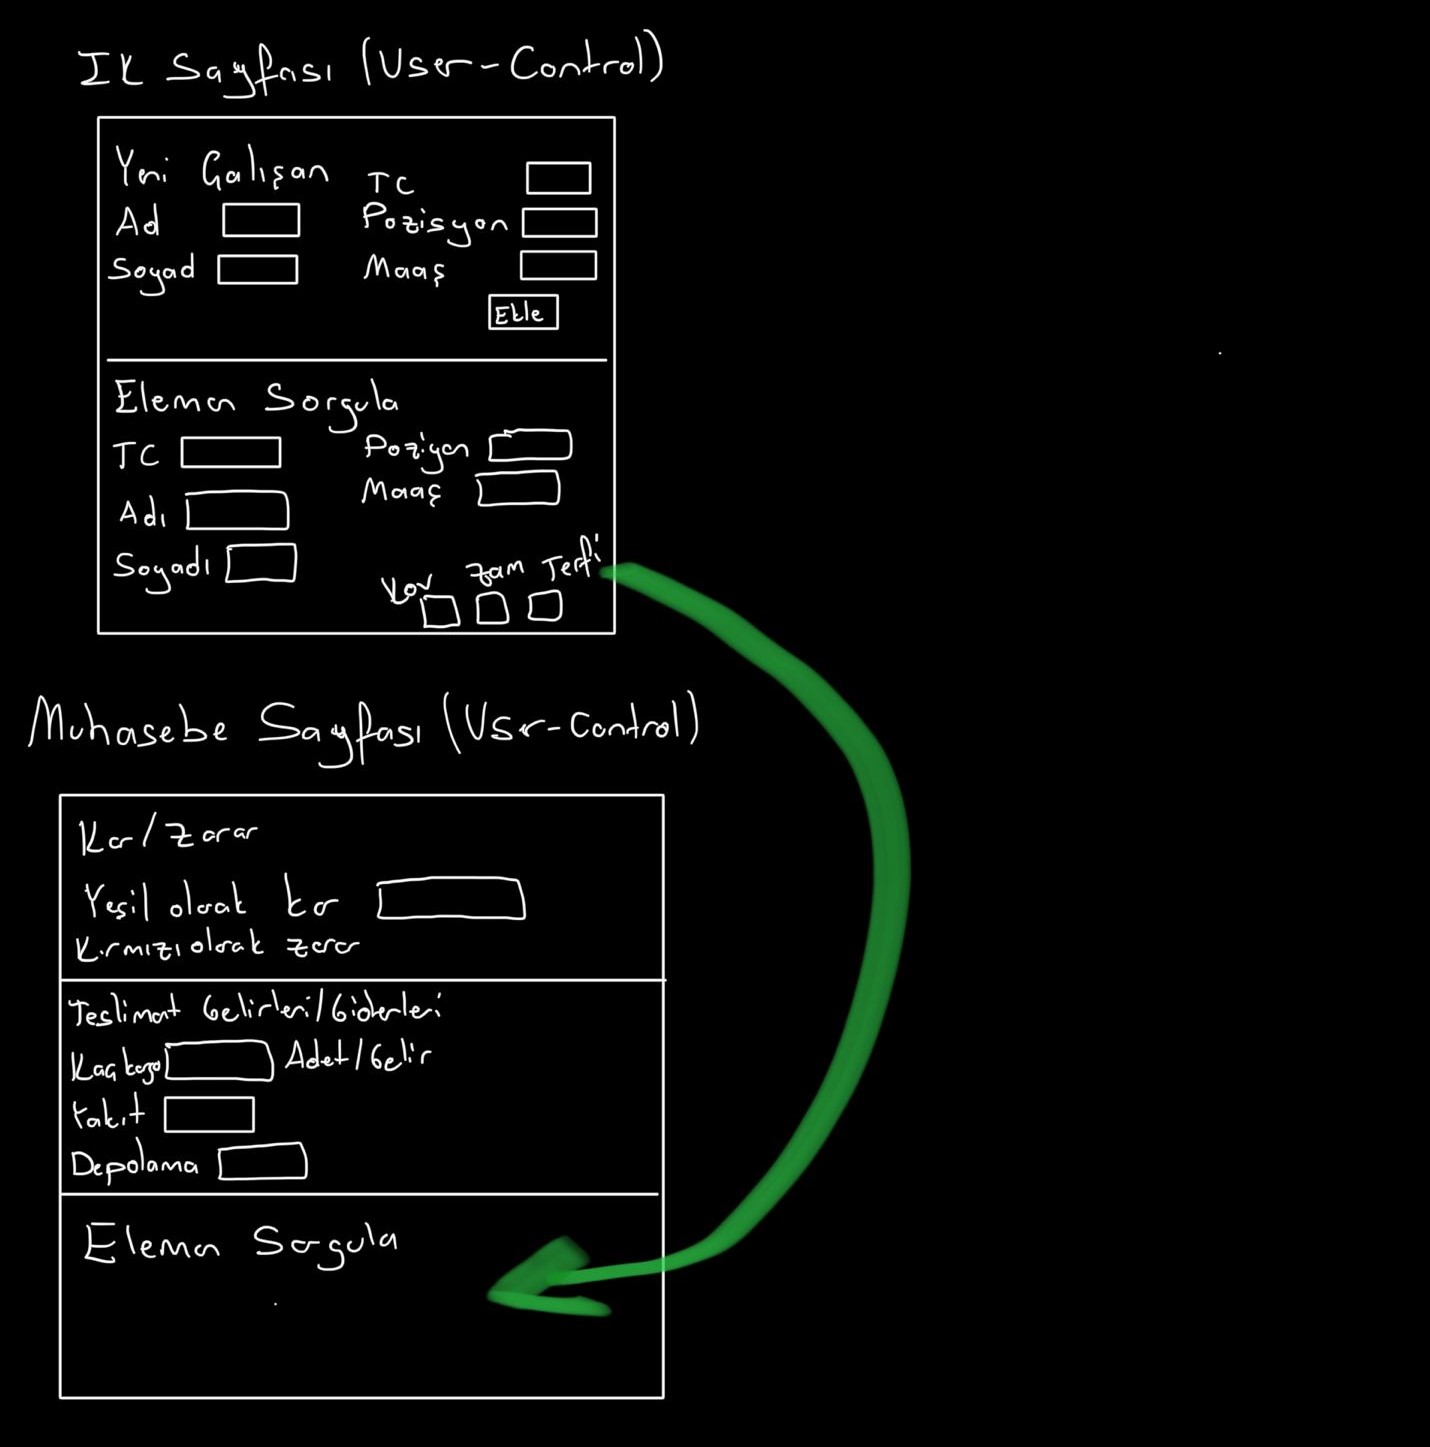 IK Sayfası (User-Control)
Yeni Çalışan
Ad
Soyad
TC
Pozisyon
Maaş
Ekle
Eleman Sorgula
TC
Adı
Soyadı
Poziyon
Maaş
Kov Zam Terfi
Muhasebe Sayfası (User-Control)
Kar/Zarar
Yeşil olarak kar
Kırmızı olarak zarar
Teslimat Gelirleri/Giderleri
Kaç kargo Adet/Gelir
Yakıt
Depolama
Eleman Sorgula